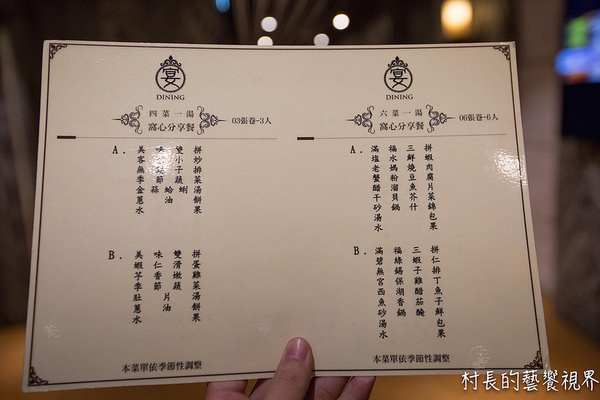 宴
DINING
四菜一湯
窩心分享餐
03張卷-3人
A.
美味雙拼
客家小炒
無錫子排
季節蔬菜
金蒜蛤蜊湯
蔥油餅
水果
B.
美味雙拼
蝦仁滑蛋
芋香嫩雞
季節蔬菜
肚片湯
蔥油餅
水果
本菜單依季節性調整
宴
DINING
六菜一湯
窩心分享餐
06張卷-6人
A.
滿福三拼
塩水鮮蝦
老媽燒肉
蟹粉豆腐
醋溜魚片
干貝芥菜
砂鍋什錦
湯包
水果
B.
滿福三拼
碧綠蝦仁
無錫子排
宮保雞丁
西湖醋魚
魚香茄子
砂鍋醃鮮
湯包
水果
本菜單依季節性調整
村長的藝饗視界